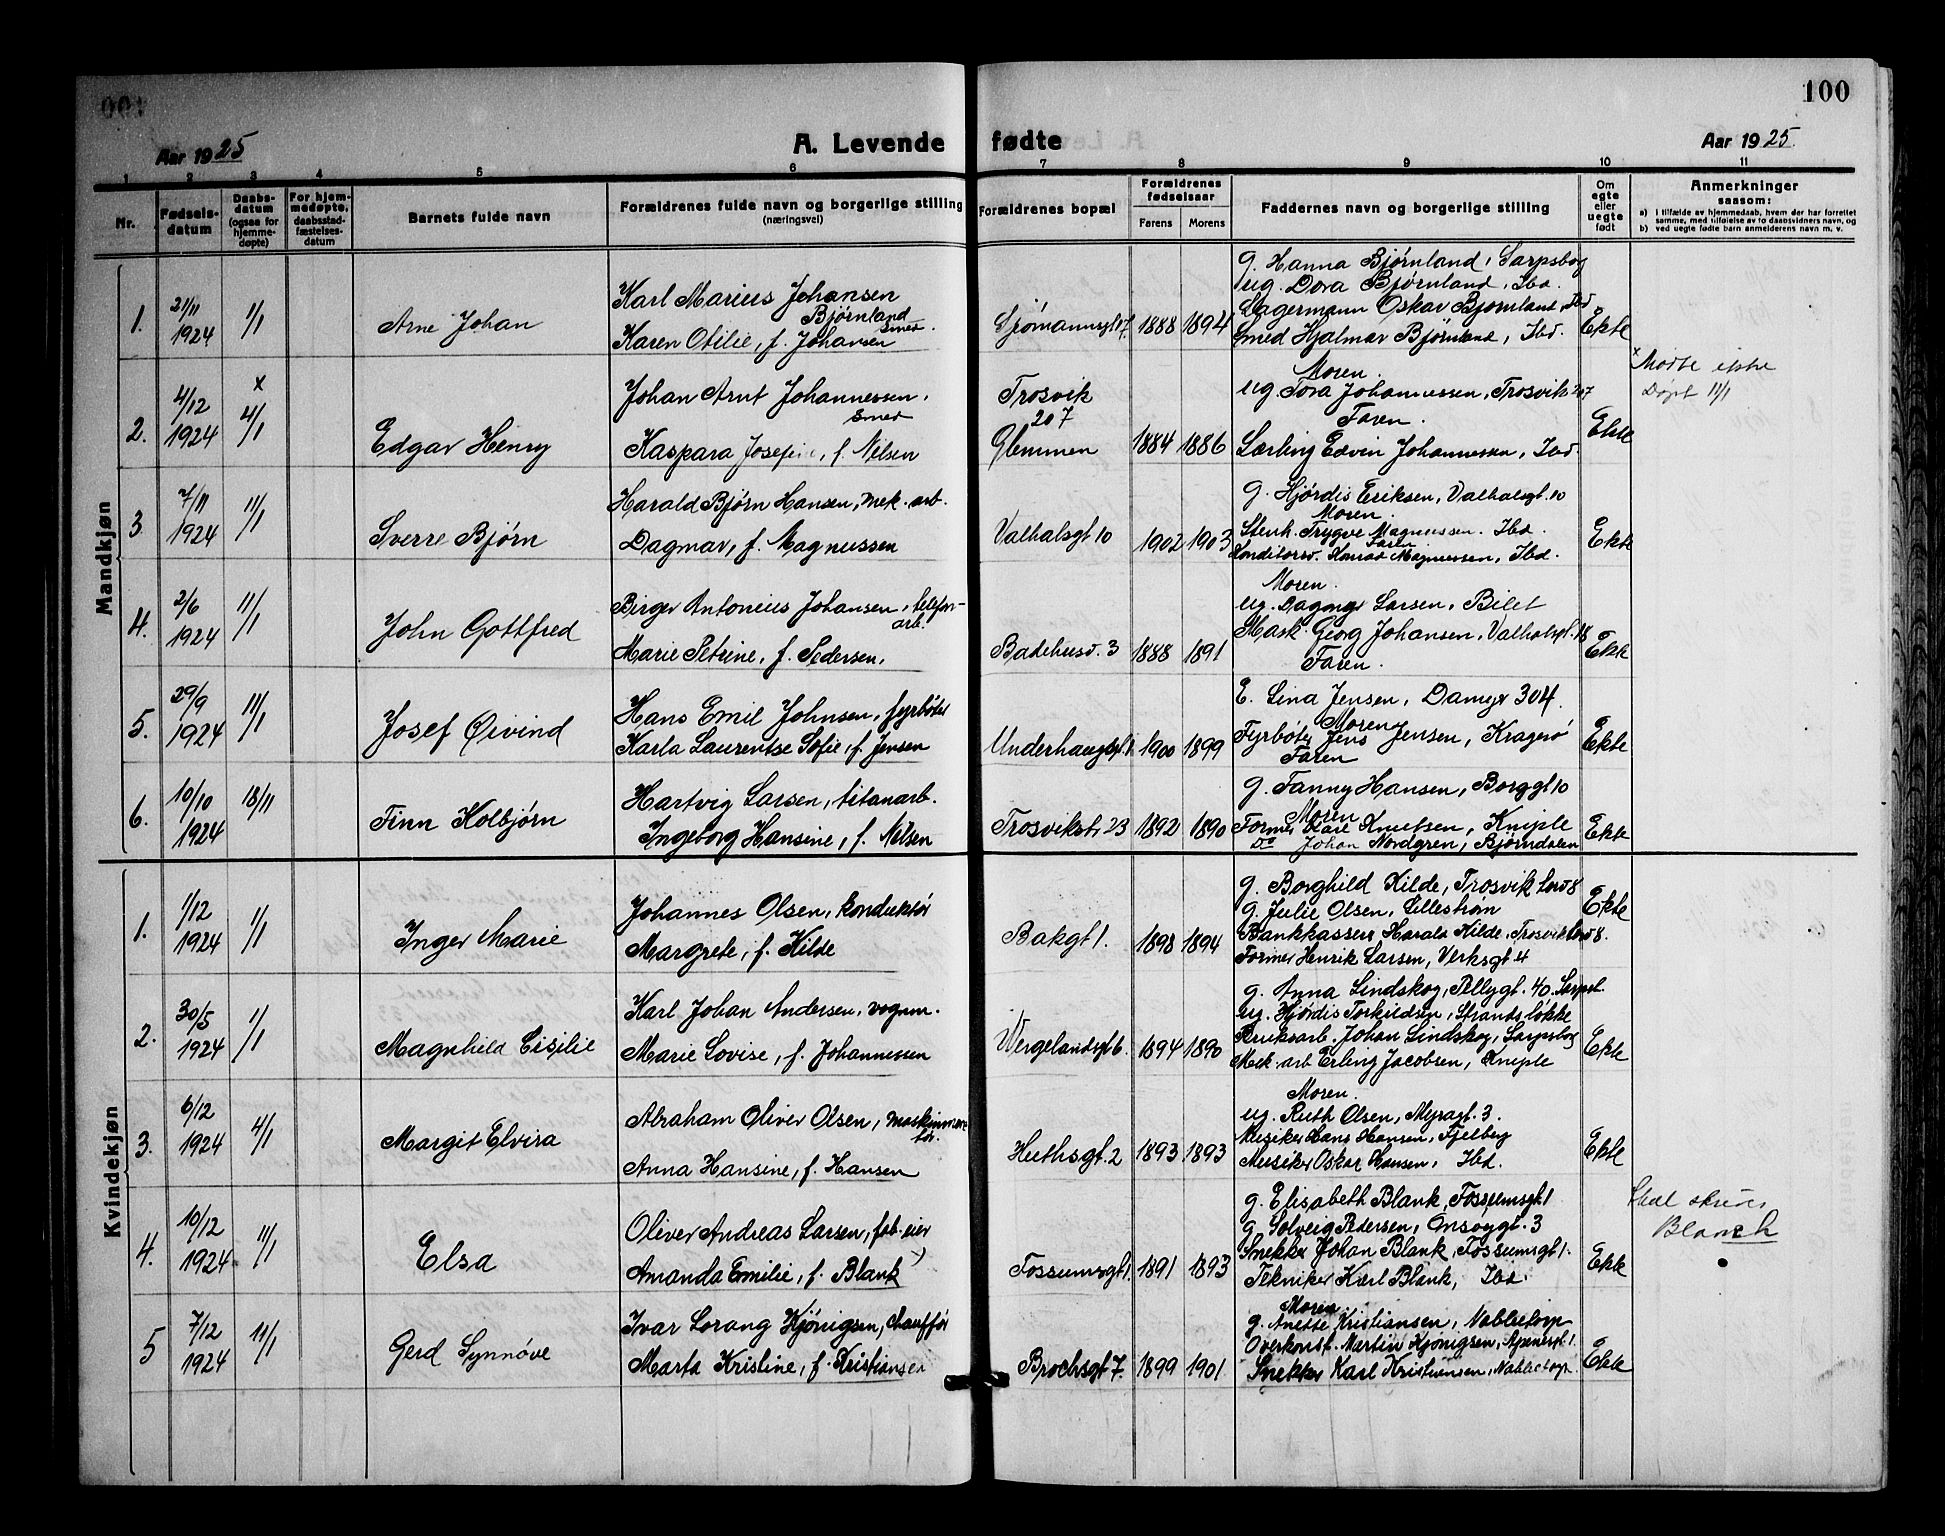 100
Aar 1925
A. Levende fødte
Aar 1925.
1 2 3 4 5 6 7 8 9 10 11
Nr.
Fødsels-
datum
Daabs-
datum
(ogsaa for
hjemme-
døpte)
For hjem-
medøpte,
daabsstad-
fæstelses-
datum
Barnets fulde navn
Forældrenes fulde navn og borgerlige stilling
(næringsvei)
Forældrenes bopæl
Forældrenes
fødselsaar
Farens Morens
Faddernes navn og borgerlige stilling
Om
egte
eller
uegte
født
Anmerkninger
saasom:
a) i tilfælde av hjemmedaab, hvem der har forrettet
samme, med tilføielse av to daabsvidners navn, og
b) ved uegte fødte barn anmelderens navn m. v.
Mandkjøn
1.
21/11
1924
1/1
Arne Johan
Karl Marius Johansen
Bjørnland
smed.
Karen Otilie, f. Johansen
Sjømannsgt 7.
1888 1894
g. Hanna Bjørnland, Sarpsborg
ug. Dora Bjørnland, Ibd.
Lagermann Oskar Bjørnland, Ibd
Smed Hjalmar Bjørnland, Ibd.
Ekte
2.
4/12
1924
x
4/1
Edgar Henry
Johan Arnt Johannessen,
smed
Kaspara Josefine, f. Nilsen
Trosvik
207
Glemmen
1884 1886
Moren.
ug. Tora Johannessen, Trosvik 207
Faren.
Lærling Edvin Johannessen, Ibd.
Ekte
x Møtte ikke
Døpt 11/1
3.
7/11
1924
11/1
Sverre Bjørn
Harald Bjørn Hansen, mek. arb.
Dagmar, f. Magnussen
Valhalsgt 10
1902 1903
g. Hjørdis Eriksen, Valhalsgt. 10
Moren.
Stenh. Trygve Magnussen. Ibd.
Faren
Konditorsv. Konrad Magnussen, Ibd.
Ekte
4.
2/6
1924
11/1
John Gottfred
Birger Antonius Johansen, telefon-
arb.
Marie Petrine, f. Pedersen,
Badehusv. 3
1888 1891
Moren.
ug. Dagmar Larsen, Bilet
Mask. Georg Johansen, Valhalsgt. 18
Faren.
Ekte
5.
29/9
1924
11/1
Josef Øivind
Hans Emil Johnsen, fyrbøter
Karla Laurentse Sofie, f. Jensen
Underhaugsgt.
1900 1899
E. Lina Jensen, Damyr 304.
Moren
Fyrbøter Jens Jensen, Kragerø
Faren
Ekte
6.
10/10
1924
18/11
Finn Kolbjørn
Hartvig Larsen, titanarb.
Ingeborg Hansine, f. Nilsen
Trosvikstr 23
1892 1890
g. Fanny Hansen, Borggt 10
Moren
Former Kare Knutsen, Kniple
Do Johan Nordgren, Bjørndalen
Ekte
Kvindekjøn
1.
1/12
1924
1/1
Inger Marie
Johannes Olsen, konduktør
Margrete, f. Kilde
Bakgt 1.
1898 1894
g. Borghild Kilde, Trosvik 8
g. Julie Olsen, Lillestrøm
Bankkasserer Harald Kilde, Trosvik 8.
Former Henrik Larsen, Verksgt 4
Ekte
2.
30/5
1924
1/1
Magnhild Cisilie
Karl Johan Andersen, vognm.
Marie Lovise, f. Johannessen
Wergelandsgt 6.
1894 1890
g. Anna Lindskog, Pellygt. 40. Sarpsb.
ug. Hjørdis Torkildsen, Strandsløkke
Bruksarb. Johan Lindskog, Sarpsborg
Mek. arb Erling Jacobsen, Kniple
Ekte
3.
6/12
1924
4/1
Margit Elvira
Abraham Oliver Olsen,
Anna Hansine, f. Hansen
Huthsgt. 2
1893 1893
Moren.
ug. Ruth Olsen, Myragt. 3.
Musiker Hans Hansen, Fjelberg
Musiker Oskar Hansen, Ibd.
Ekte
4.
10/12
1924
11/1
Elsa
Oliver Andreas Larsen, fab. eier
Amanda Emilie, f. Blank
Fossumsgt 1.
1891 1893
g. Elisabeth Blank, Fossumsgt 1
g. Solveig Pedersen, Onsøygt. 3
Snekker Johan Blank, Fossumsgt 1.
Tekniker Karl Blank, Ibd.
Ekte
Skal skrives
Blanch
5
7/12
1924
11/1
Gerd Synnøve
Ivar Lorang Kjønigsen, chauffør
Marta Kristine, f. Kristiansen
Brochsgt 7.
1899 1901
Moren.
g. Anette Kristiansen, Nabbetorp
Overkonst. Martin Kjønigsen, Apenesgt. 1.
Snekker Karl Kristiansen, Nabbetorp
Ekte